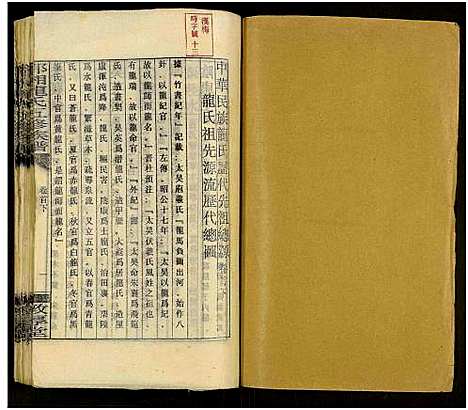 中華民族龍氏歷代先祖總源
龍氏祖先源流歷代總圖
據「竹書紀年」記載：「太昊庖羲氏」「龍馬負圖出河，始作八
卦，以龍紀官」。「左傳．昭公十七年」：「太昊氏以龍爲紀，
故以龍師而龍名」。晉杜預注：「太昊伏羲氏風姓之祖也，
有龍瑞，故以龍命官」。「外紀」：「太昊命朱襄爲飛龍
氏，造書契；昊英爲潛龍氏，造甲曆；大庭爲居龍氏，造屋
廬；渾沌爲降龍氏，驅民害；陰康爲土龍氏，治田里；栗陸
爲水龍氏，繁滋草木，疏導泉流。又立五官，以春官爲青龍
氏，又曰蒼龍氏，夏官爲赤龍氏，秋官爲白龍氏，冬官爲黑
龍氏，中官爲黃龍氏，是謂龍師而龍名」。
龍氏五修族譜
卷首下
敦厚堂